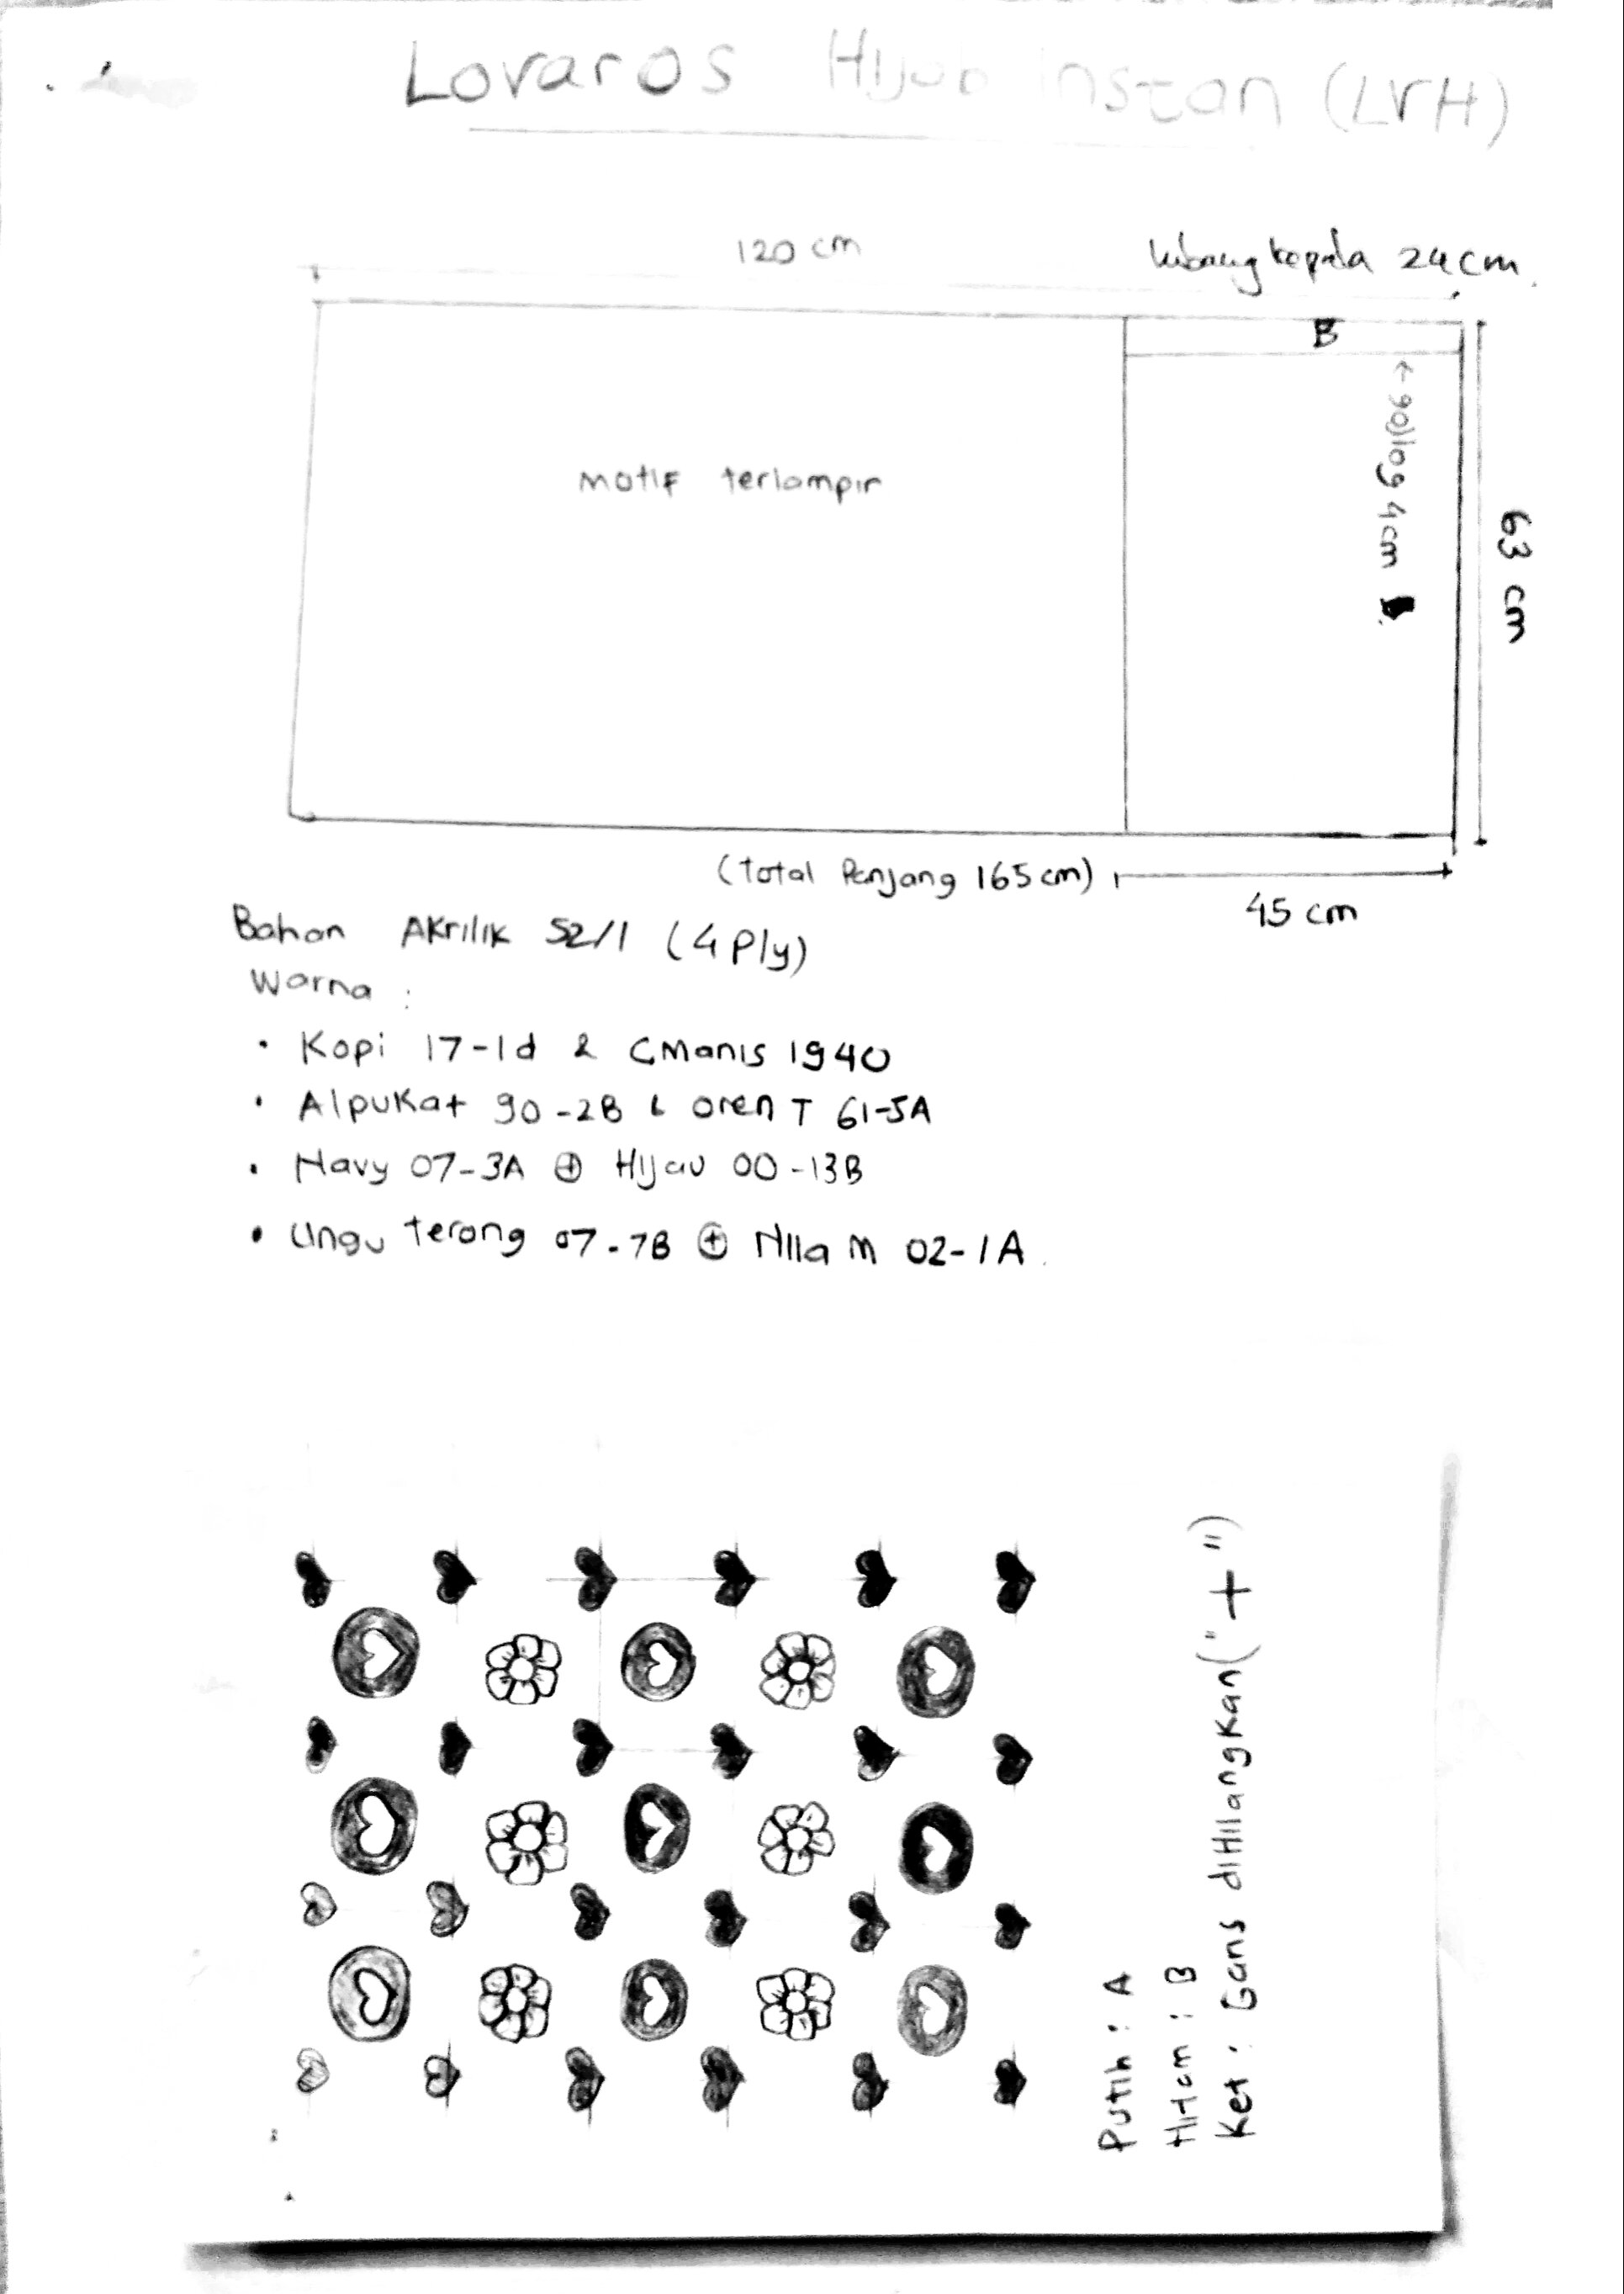 Lovaros Hijab instan (LVH)
120 cm
lubang kepala 24 cm.
B
← gojlog 4cm
motif terlampir
63 cm
(total Panjang 165 cm)
45 cm
Bahan Akrilik 52/1 (4 Ply)
Warna :
• Kopi 17-1d & CManis 1940
• Alpukat 90-2B & oren T 61-5A
• Navy 07-3A ⊕ Hijau 00-13B
• Ungu terong 07-7B ⊕ Nila M 02-1A.
Putih : A
Hitam : B
Ket : Gans diHilangkan ("+")